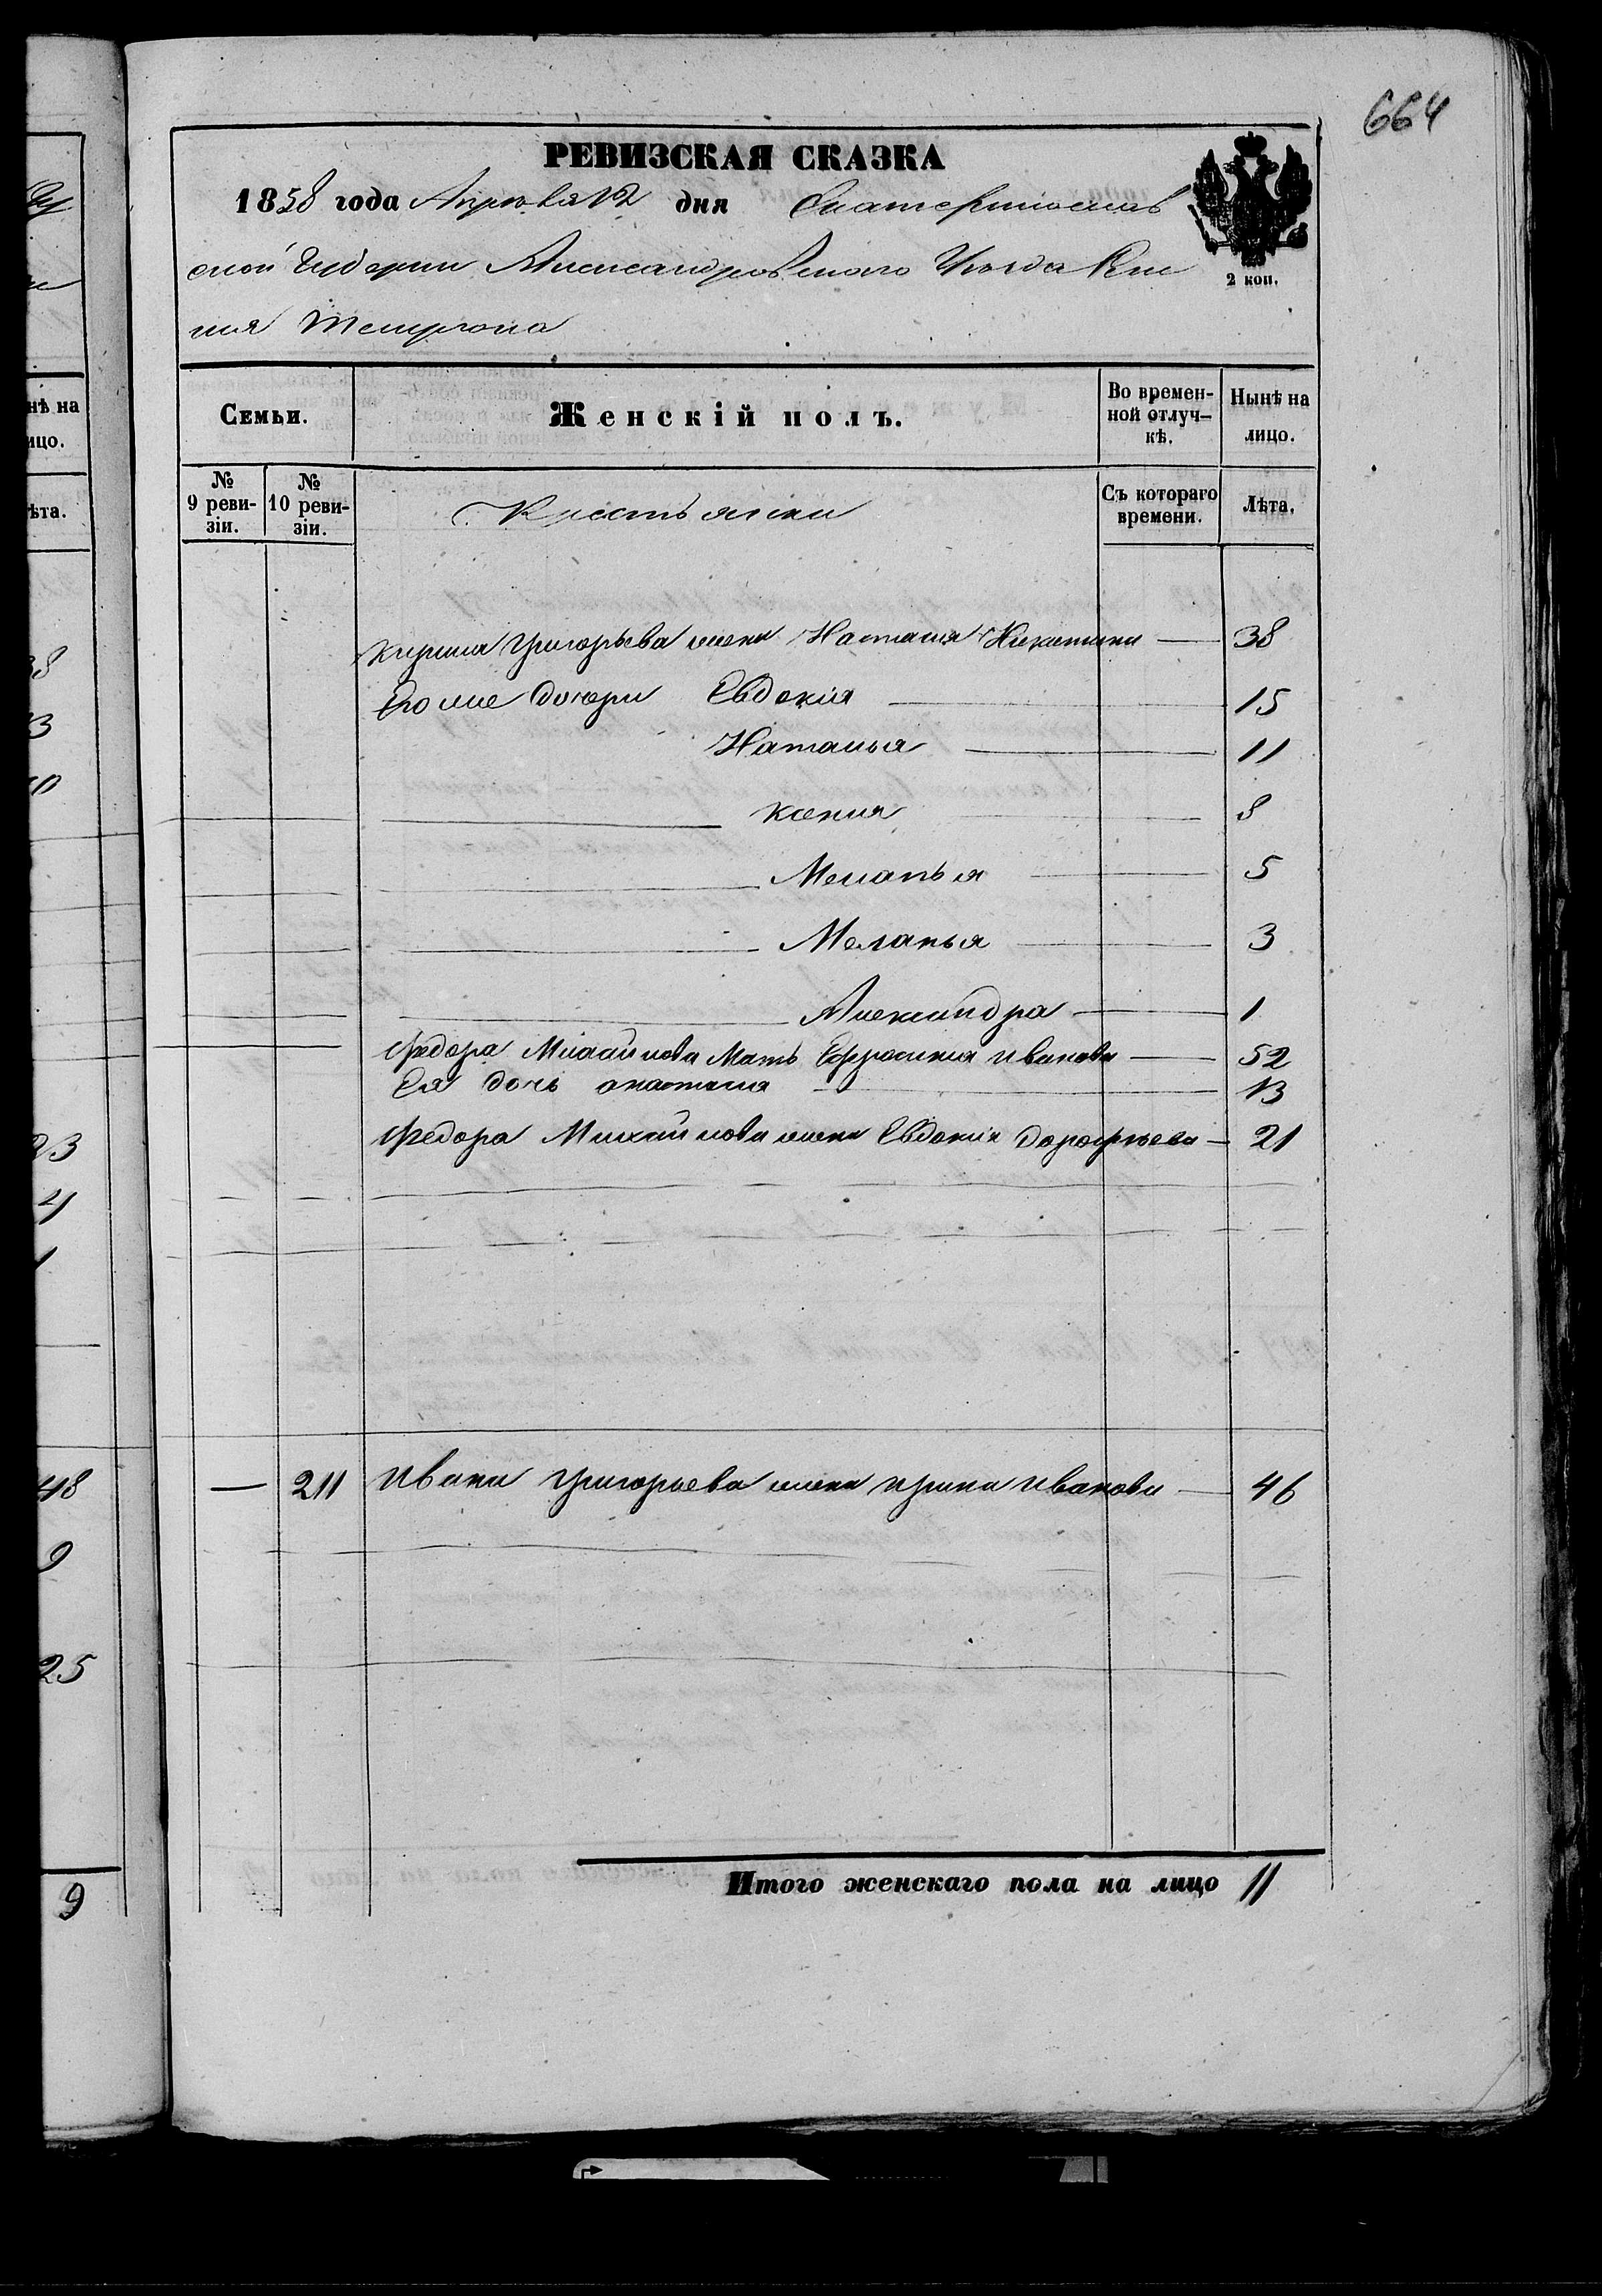 664
РЕВИЗСКАЯ СКАЗКА
1858 года Апреля 12 дня Екатеринослав
ской Губернии Александровского Уезда Име
ния Темрюка
2 коп.
Семьи.
Женскій полъ.
Во времен-
ной отлуч-
кѣ.
Нынѣ на
лицо.
№
9 реви-
зіи.
№
10 реви-
зіи.
Крестьянки
Съ котораго
времени.
Лѣта.
Кирила Григорьева жена Настасия Никитина 38
Его же дочери Евдокия 15
Наталья 11
Ксения 8
Меланья 5
Меланья 3
Александра 1
Федора Михайлова Мать Ефросиния Иванова 52
Ея дочь анастасия 13
Федора Михайлова жена Евдокия Дорофѣева 21
— 211 Ивана Григорьева жена Ирина Иванова 46
Итого женскаго пола на лицо 11
нѣ на
ицо.
ѣта.
38
23
4
1
48
9
25
9